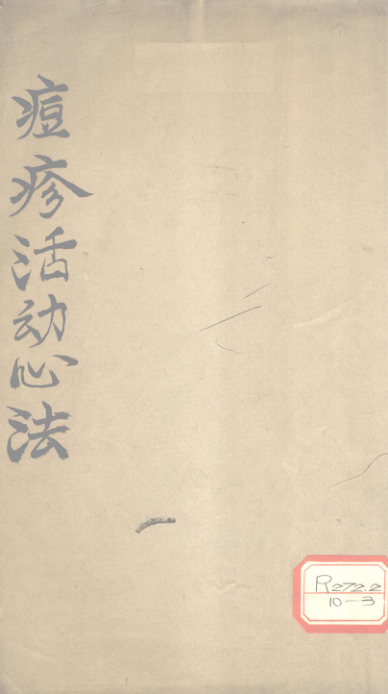 痘疹活动心法
R272.2
10-3